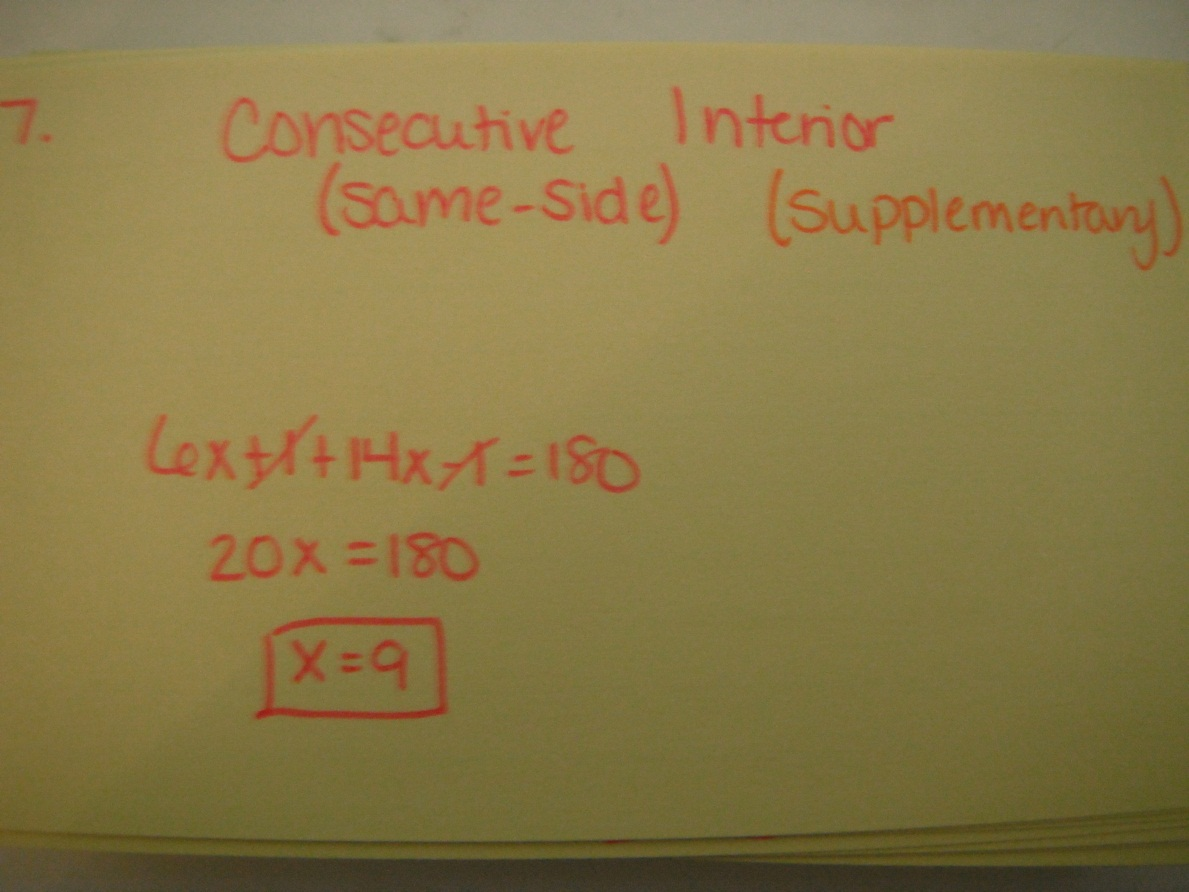 7. Consecutive Interior
(same-side) (supplementary)
6x+1+14x-1=180
20x=180
x=9